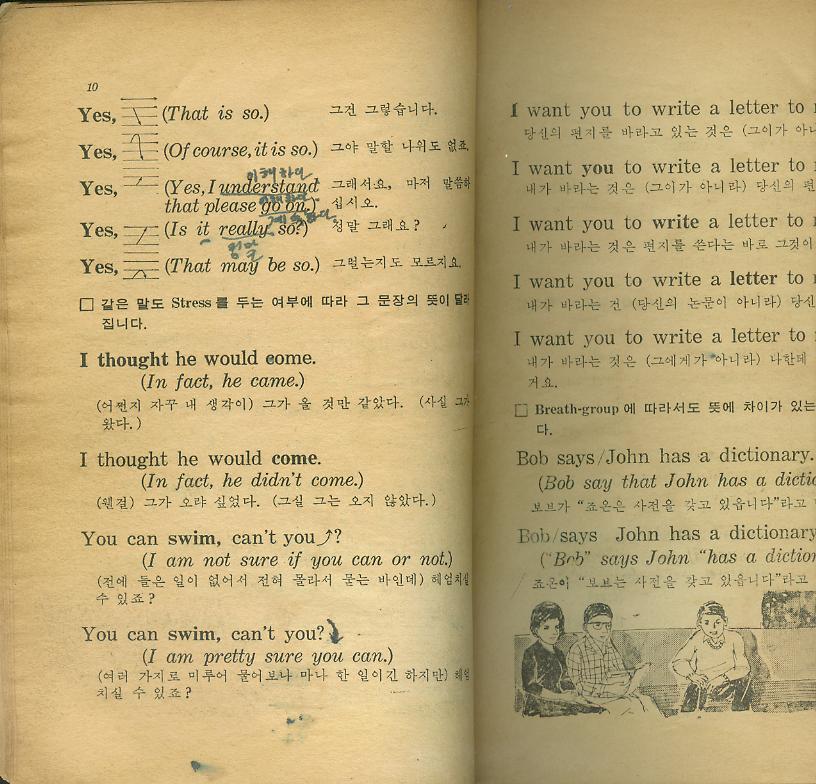 10
Yes, (That is so.) 그건 그렇습니다.
Yes, (Of course, it is so.) 그야 말할 나위도 없죠.
이해하다
Yes, (Yes, I understand 그래서요, 마저 말씀하
that please go on.) 십시오.
계속하다
Yes, (Is it really so?) 정말 그래요?
정말
Yes, (That may be so.) 그럴는지도 모르지요.
□ 같은 말도 Stress를 두는 여부에 따라 그 문장의 뜻이 달라
집니다.
I thought he would come.
(In fact, he came.)
(어쩐지 자꾸 내 생각이) 그가 올 것만 같았다. (사실 그가
왔다.)
I thought he would come.
(In fact, he didn't come.)
(웬걸) 그가 오랴 싶었다. (그실 그는 오지 않았다.)
You can swim, can't you⤴?
(I am not sure if you can or not.)
(전에 들은 일이 없어서 전혀 몰라서 묻는 바인데) 헤엄치실
수 있죠?
You can swim, can't you?⤵
(I am pretty sure you can.)
(여러 가지로 미루어 물어보나 마나 한 일이긴 하지만) 헤엄
치실 수 있죠?
I want you to write a letter to
당신의 편지를 바라고 있는 것은 (그이가 아니
I want you to write a letter to
내가 바라는 것은 (그이가 아니라) 당신의 편
I want you to write a letter to
내가 바라는 것은 편지를 쓴다는 바로 그것이
I want you to write a letter to
내가 바라는 건 (당신의 논문이 아니라) 당신
I want you to write a letter to
내가 바라는 것은 (그에게가 아니라) 나한테
거요.
□ Breath-group에 따라서도 뜻에 차이가 있는
다.
Bob says/John has a dictionary.
(Bob say that John has a dictio
보브가 "죠온은 사전을 갖고 있읍니다"라고
Bob/says John has a dictionary
("Bob" says John "has a diction
죠온이 "보브는 사전을 갖고 있읍니다"라고